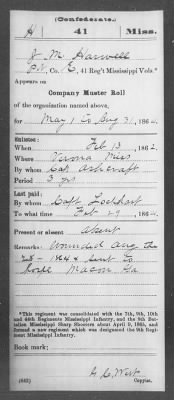 (Confederate.)
H 41 Miss.
J. M. Harwell
Pvt, Co. E, 41 Reg't Mississippi Vols.*
Appears on
Company Muster Roll
of the organization named above,
for May 1 to Aug 31, 1864.
Enlisted:
When Feb 13, 1862.
Where Verona Miss
By whom Capt Ashcraft
Period 3 yrs
Last paid:
By whom Capt Lockhart
To what time Feb 29, 1864.
Present or absent Absent
Remarks: Wounded Aug the
1864 & Sent to
Macon Ga
*This regiment was consolidated with the 7th, 9th, 10th
and 44th Regiments Mississippi Infantry, and the 9th Battalion
Mississippi Sharp Shooters about April 9, 1865, and
formed a new regiment which was designated the 9th Regiment
Mississippi Infantry.
Book mark:
(642) West
Copyist.